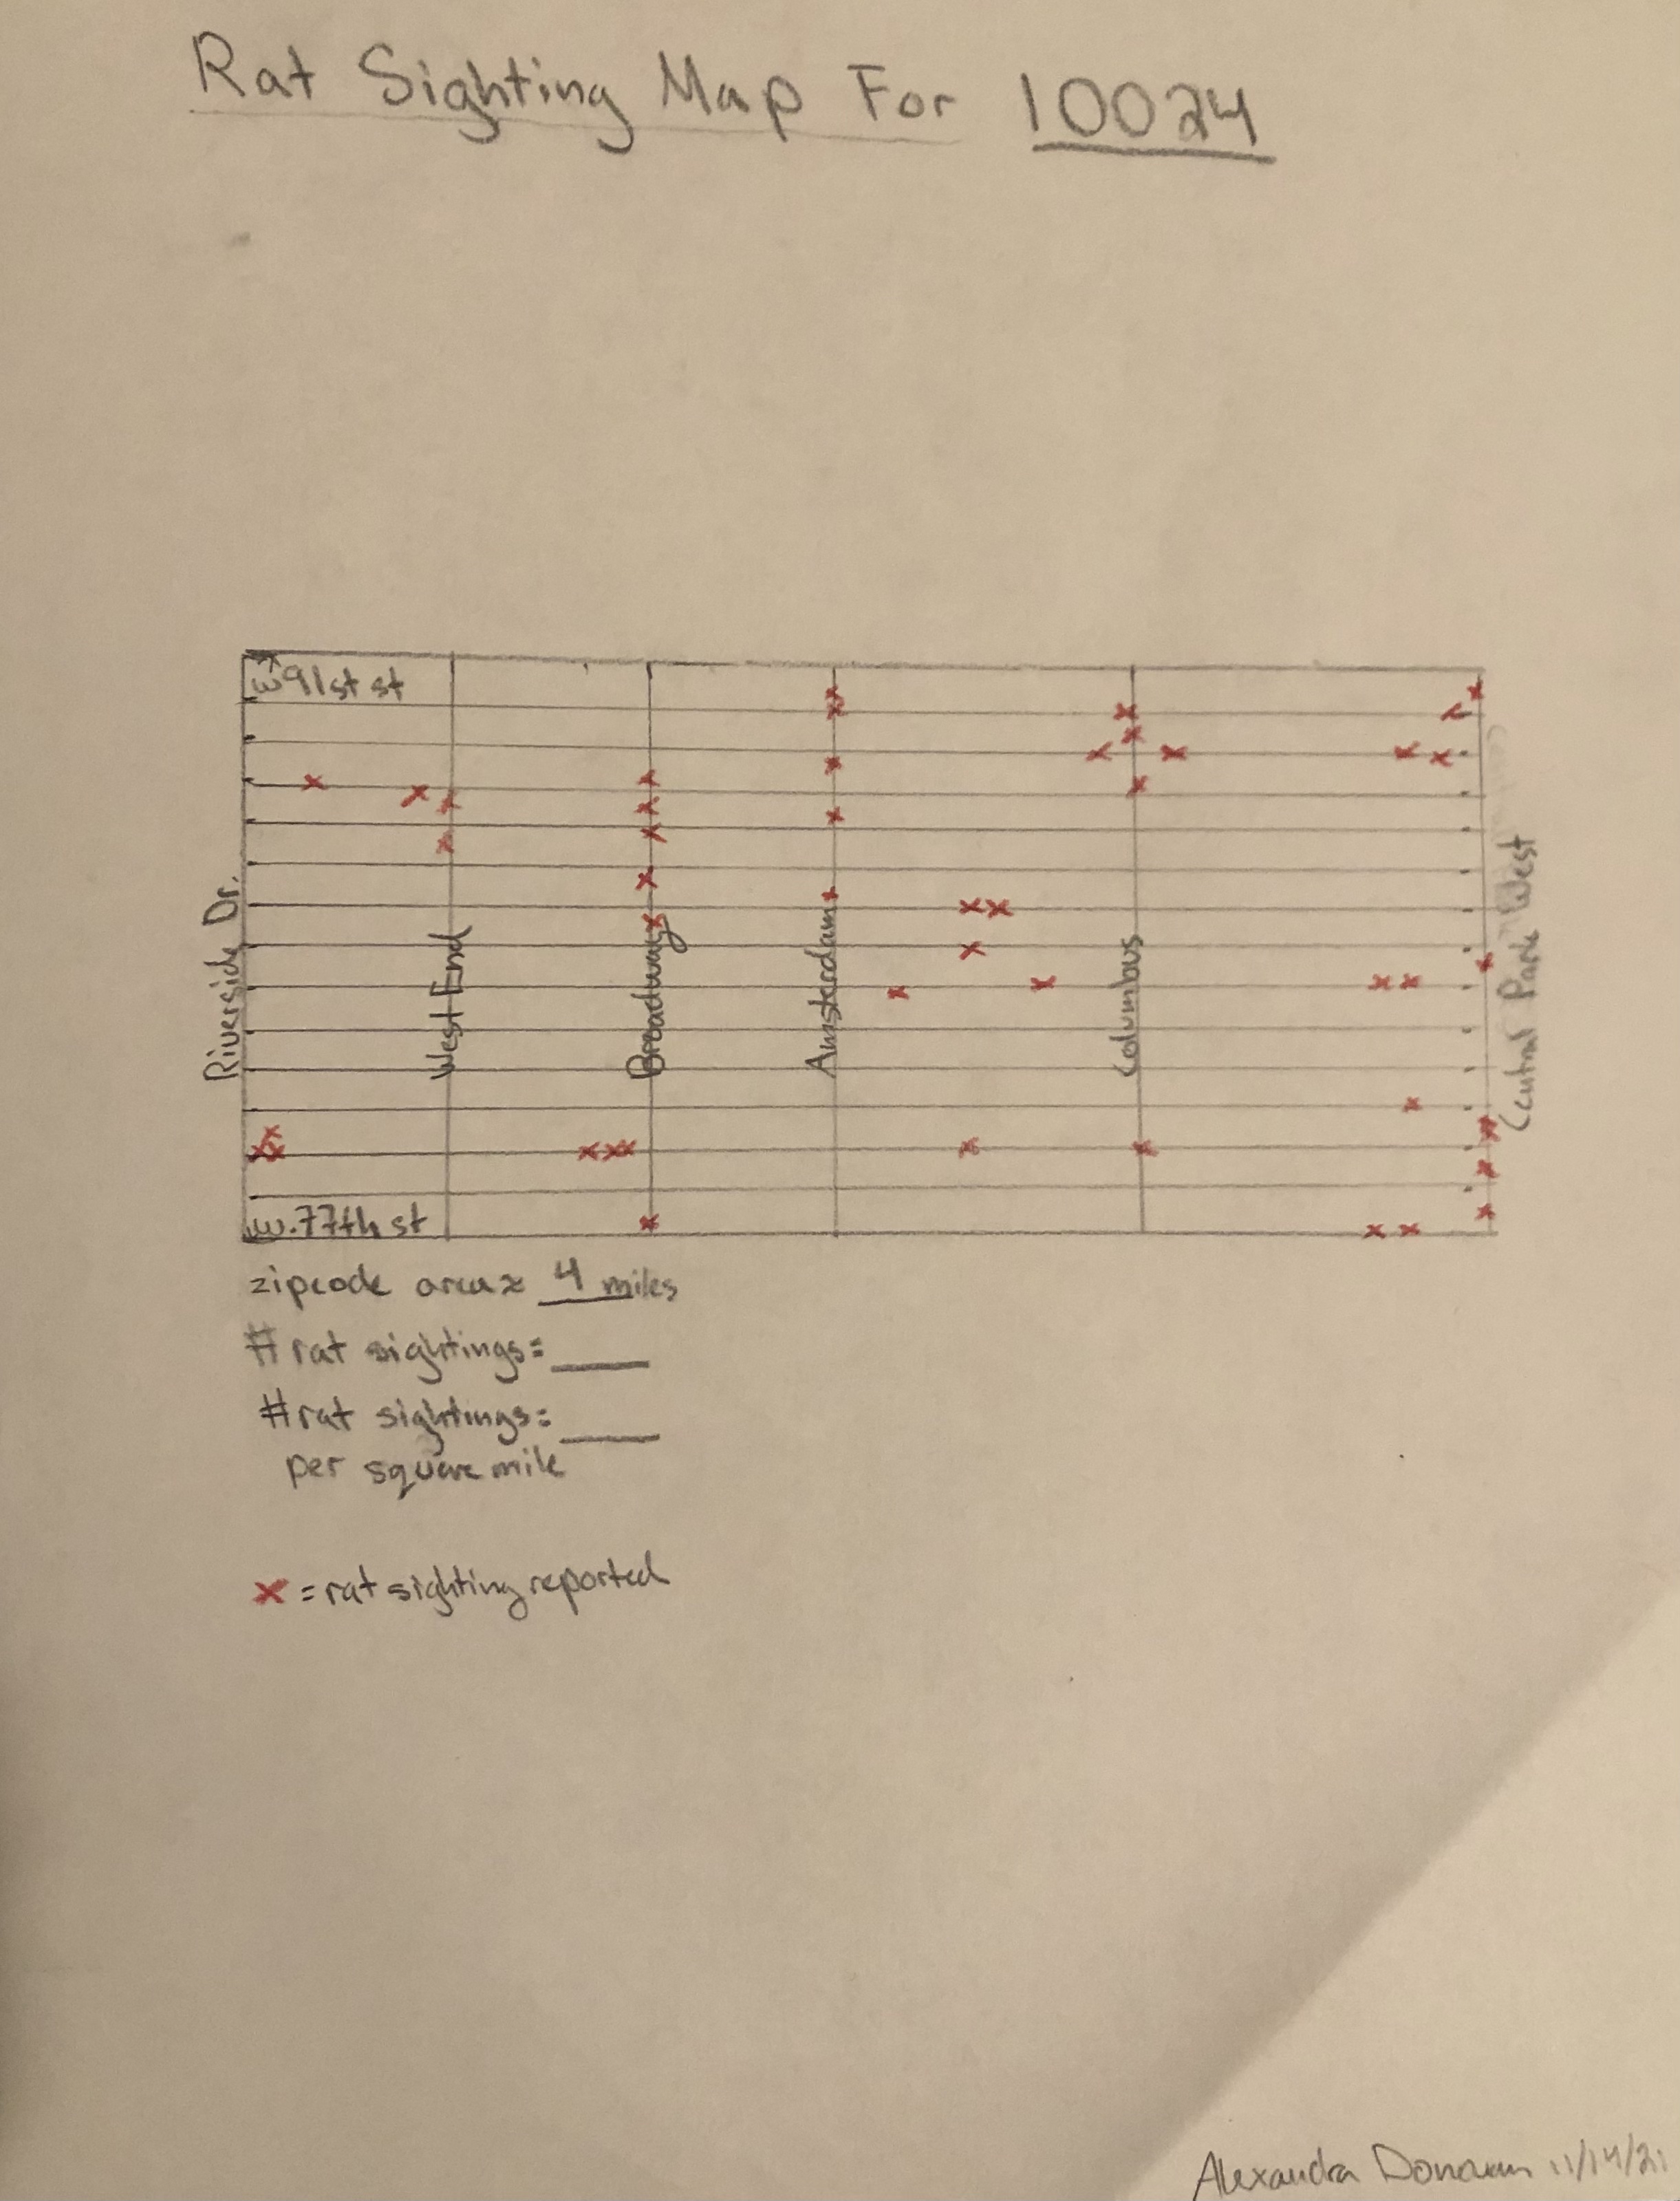 Rat Sighting Map For 10024
w 91st st
Riverside Dr.
West End
Broadway
Amsterdam
Columbus
Central Park West
w. 77th st
zipcode area ≈ 4 miles
# rat sightings = ____
# rat sightings = ____
per square mile
x = rat sighting reported
Alexandra Donovan 11/14/21